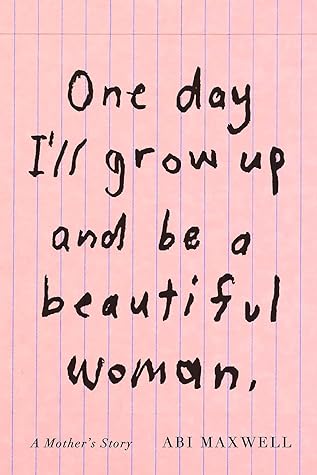 One day
I'll grow up
and be a
beautiful
woman.
A Mother's Story ABI MAXWELL